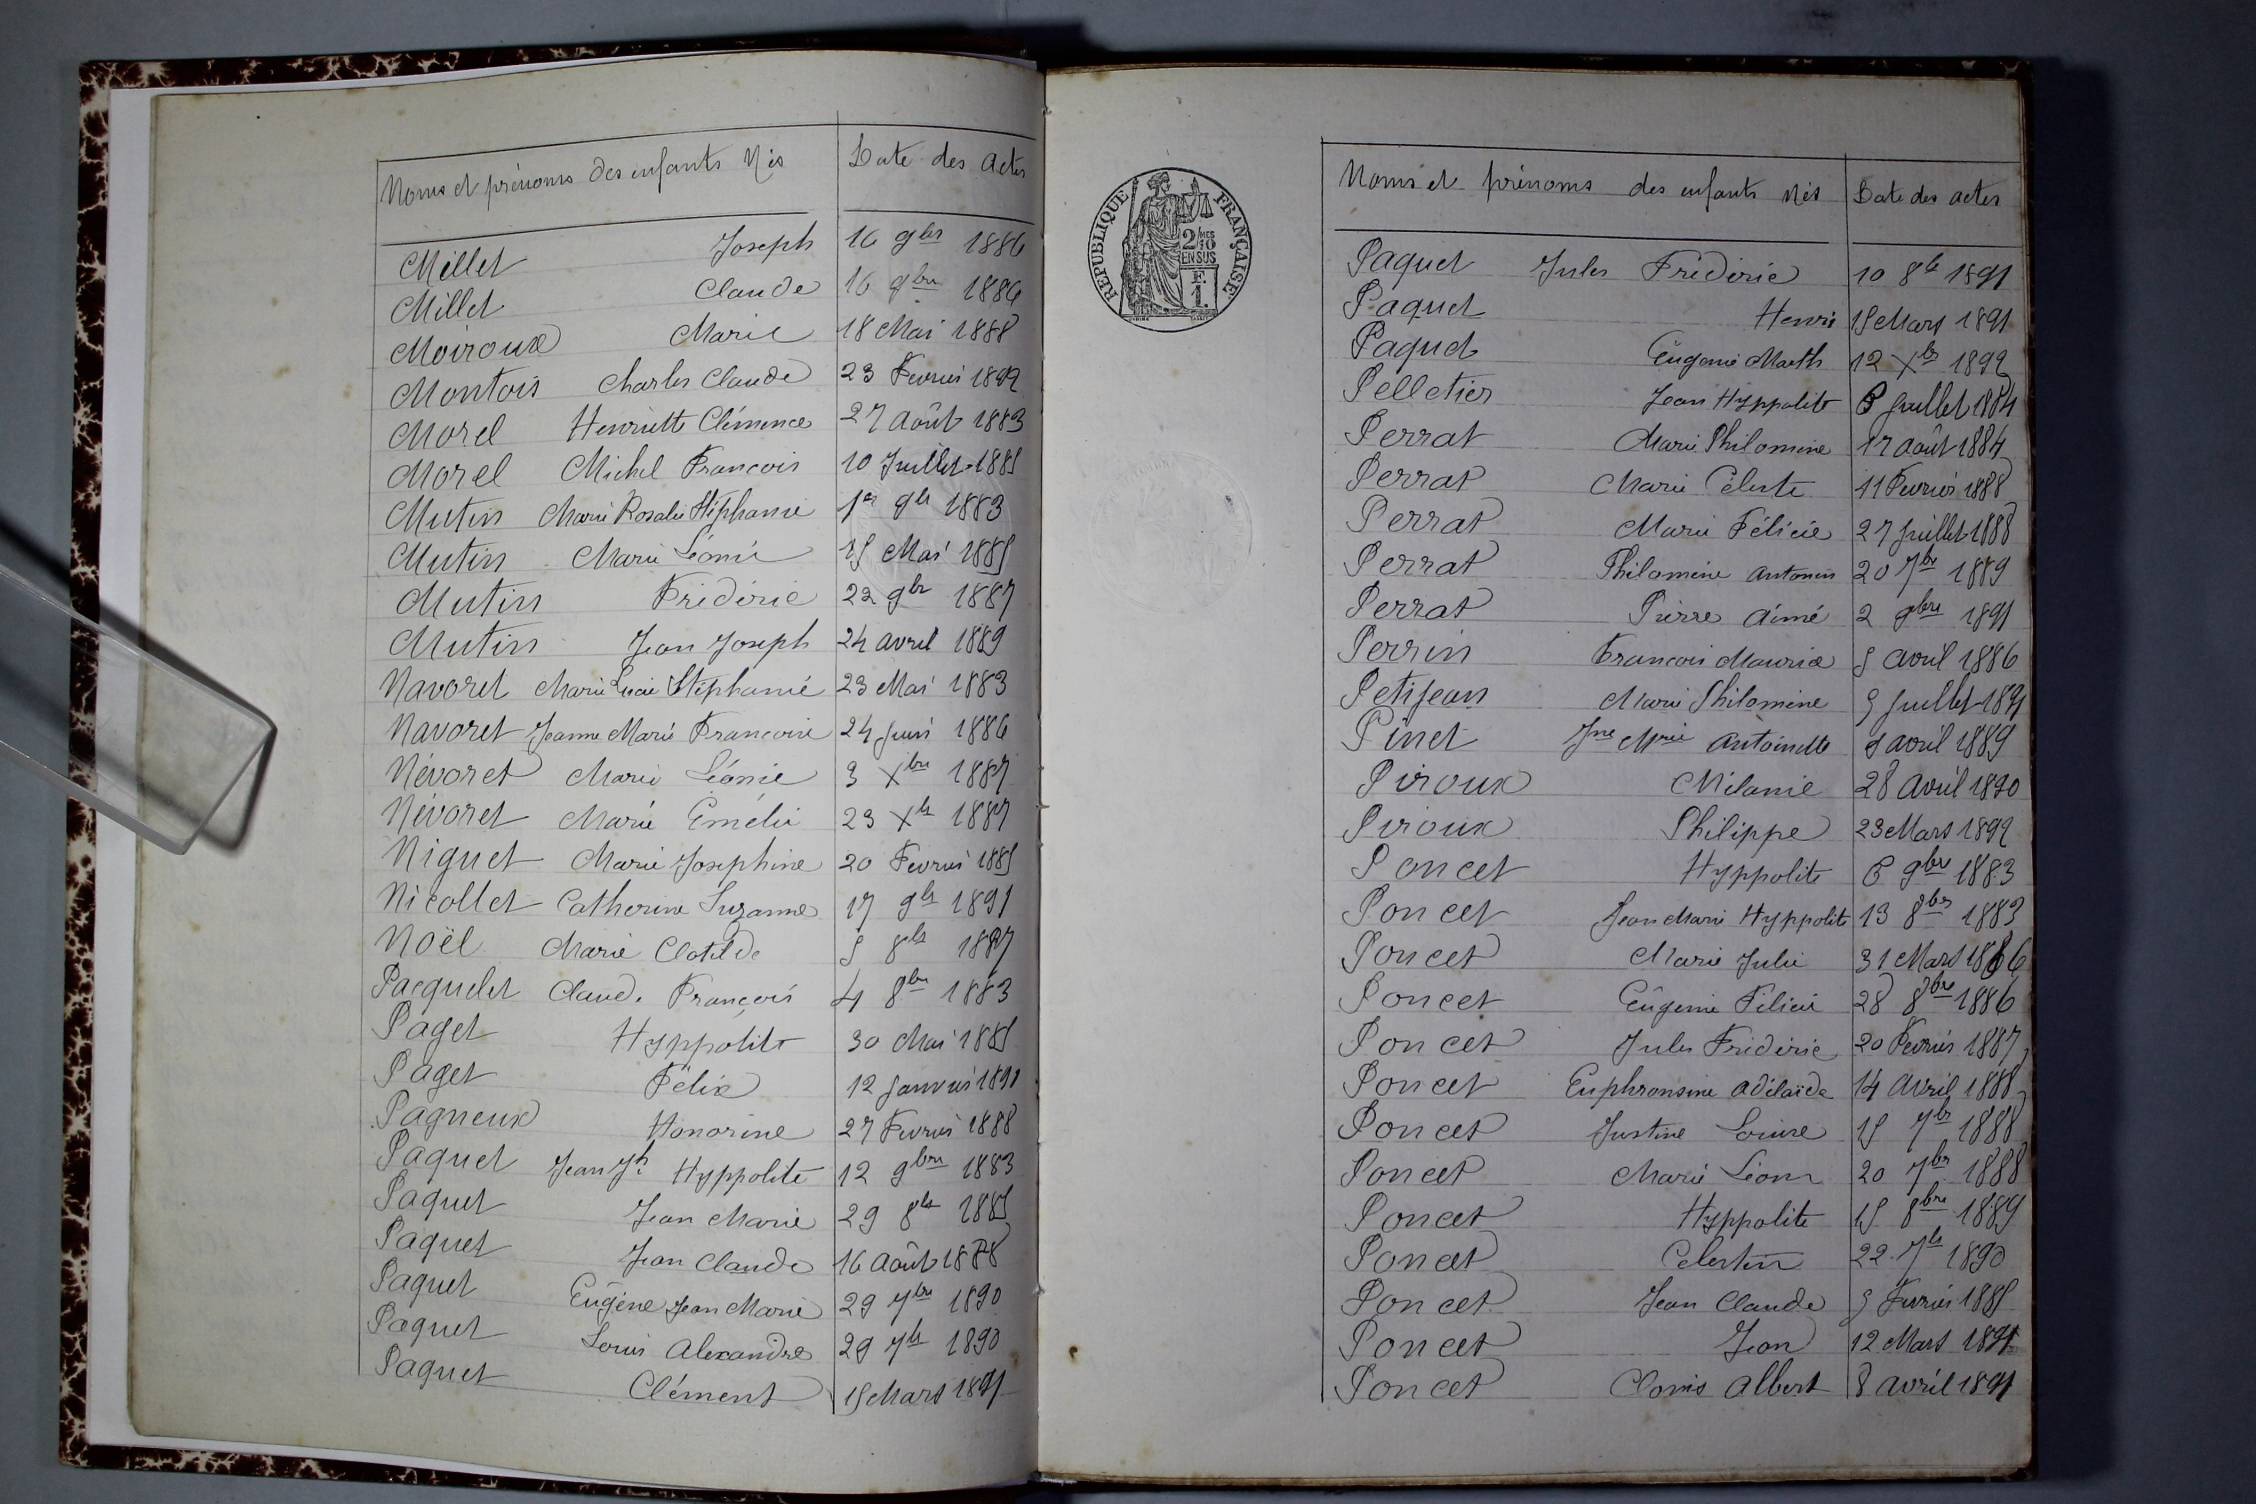 Noms et prénoms des enfants Nés Date des actes
Millet Joseph 16 9bre 1886
Millet Claude 16 9bre 1886
Moiroux Marie 18 Mai 1888
Montois Charles Claude 23 Fevrier 1892
Morel Henriette Clémence 27 Août 1883
Morel Michel Francois 10 Juillet 1885
Mutin Marie Rosalie Stéphanie 1er 9bre 1883
Mutin Marie Léonie 15 Mai 1885
Mutin Fréderic 22 9bre 1887
Mutin Jean Joseph 24 avril 1889
Navoret Marie Lucie Stéphanie 23 Mai 1883
Navoret Jeanne Marie Francoise 24 Juin 1886
Névoret Marie Léonie 3 Xbre 1887
Névoret Marie Emélie 23 Xbre 1887
Niguet Marie Josephine 20 Fevrier 1885
Nicollet Catherine Suzanne 17 9bre 1891
Noël Marie Clotilde 5 8bre 1887
Pacquelet Claude François 4 8bre 1883
Paget Hyppolite 30 Mai 1885
Paget Félix 12 Janvier 1891
Pagneux Honorine 27 Fevrier 1888
Paquet Jean Jh Hyppolite 12 9bre 1883
Paquet Jean Marie 29 8bre 1885
Paquet Jean Claude 16 Août 1888
Paquet Eugène Jean Marie 29 7bre 1890
Paquet Louis Alexandre 29 7bre 1890
Paquet Clément 15 Mars 1891
REPUBLIQUE FRANÇAISE
2/10 MES
EN SUS
F.
1.
Noms et prénoms des enfants Nés Date des actes
Paquet Jules Fréderic 10 8bre 1891
Paquet Henri 15 Mars 1891
Paquet Eugenie Marth 12 Xbre 1892
Pelletier Jean Hyppolite Juillet 1884
Perrat Marie Philomine 17 août 1884
Perrat Marie Céleste 11 Fevrier 1888
Perrat Marie Félicie 27 Juillet 1888
Perrat Philomine Antonin 20 7bre 1889
Perrat Pierre Aimé 2 9bre 1891
Perrin Francois Maurice 5 avril 1886
Petijean Marie Philomine 9 Juillet 1891
Pinet Jne Mrie Antoinette avril 1889
Piroux Mélanie 28 Avril 1890
Piroux Philippe 23 Mars 1892
Poncet Hyppolite 6 9bre 1883
Poncet Jean Marie Hyppolite 13 8bre 1883
Poncet Marie Julie 31 Mars 1886
Poncet Eugénie Félicie 28 8bre 1886
Poncet Jules Fréderic 20 Fevrier 1887
Poncet Euphronsine Adélaïde 14 Avril 1888
Poncet Justine Louise 15 7bre 1888
Poncet Marie Léon 20 7bre 1888
Poncet Hyppolite 15 8bre 1889
Poncet Celestin 22 7bre 1890
Poncet Jean Claude 9 Fevrier 1885
Poncet Jean 12 Mars 1891
Poncet Clovis Albert 8 avril 1891